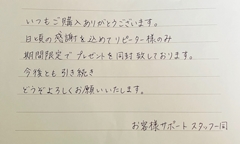 いつもご購入ありがとうございます。
日頃の感謝を込めてリピーター様のみ
期間限定でプレゼントを同封致しております。
今後とも引き続き
どうぞよろしくお願いいたします。
お客様サポート スタッフ一同